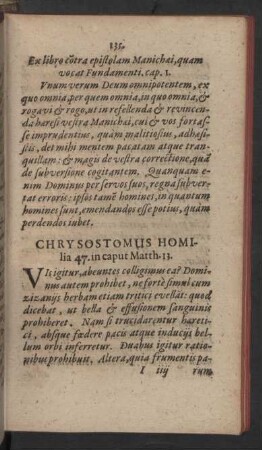 135.
Ex libro cōtra epistolam Manichai, quam
vocat Fundamenti. cap. 1.
Vnum verum Deum omnipotentem, ex
quo omnia, per quem omnia, in quo omnia, &
rogavi & rogo, ut in refellenda & revincen-
da haeresi vestra Manichai, cui & vos fortas-
se imprudentius, quàm malitiosius, adhaesi-
stis, det mihi mentem pacatam atque tran-
quillam: & magis de vestra correctione, quā
de subversione cogitantem. Quanquam e-
nim Dominus per servos suos, regna subver-
tat erroris: ipsos tamē homines, in quantum
homines sunt, emendandos esse potius, quàm
perdendos iubet.
CHRYSOSTOMUS HOMI-
lia 47. in caput Matth. 13.
VIs igitur, abeuntes colligimus ea? Domi-
nus autem prohibet, ne fortè simul cum
zizanijs herbam etiam tritici evellāt: quod
dicebat, ut bella & effusionem sanguinis
prohiberet. Nam si trucidarentur haereti-
ci, absque foedere pacis atque inducijs bel-
lum orbi inferretur. Duabus igitur ratio-
nibus prohibuit. Altera, quia frumentis pa-
I iij rum